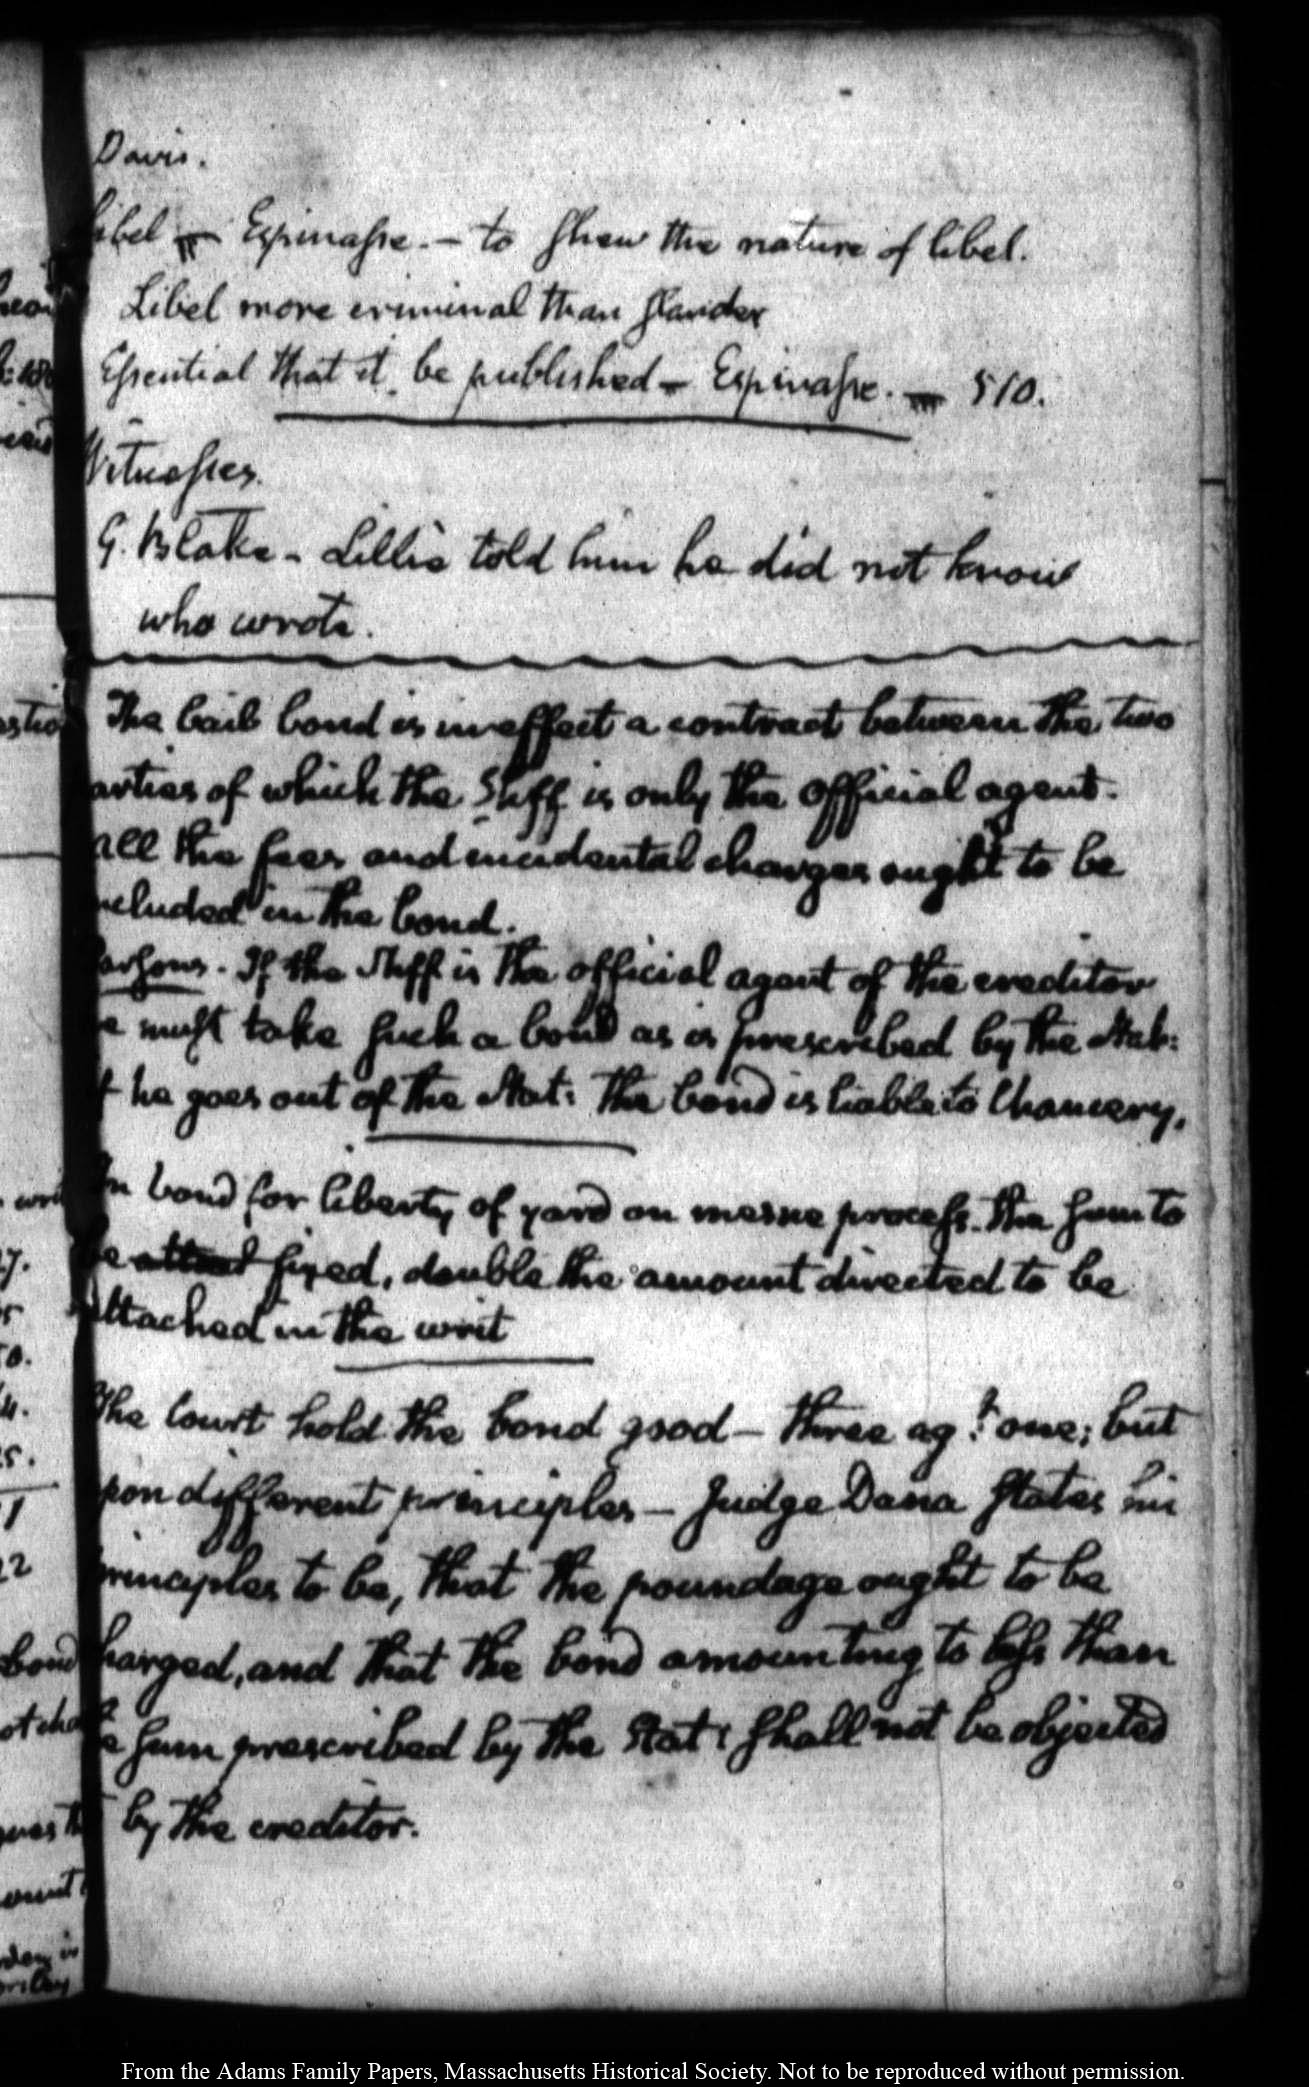 Davis.
Libel — Espinasse. — to shew the nature of libel.
Libel more criminal than slander
Essential that it be published — Espinasse. — 510.
Witnesses.
G. Blake - Lillie told him he did not know
who wrote.
The bail bond is in effect a contract between the two
parties of which the Shff is only the official agent.
All the fees and incidental charges ought to be
included in the bond.
Parsons. If the Shff is the official agent of the creditor
he must take such a bond as is prescribed by the Stat:
If he goes out of the Stat: the bond is liable to Chancery,
In bond for liberty of yard on mesne process. the sum to
be fixed, double the amount directed to be
attached in the writ
The Court hold the bond good — three agt. one; but
upon different principles — Judge Dana states his
principles to be, that the poundage ought to be
charged, and that the bond amounting to less than
the sum prescribed by the Stat: shall not be objected
by the creditor.
From the Adams Family Papers, Massachusetts Historical Society. Not to be reproduced without permission.